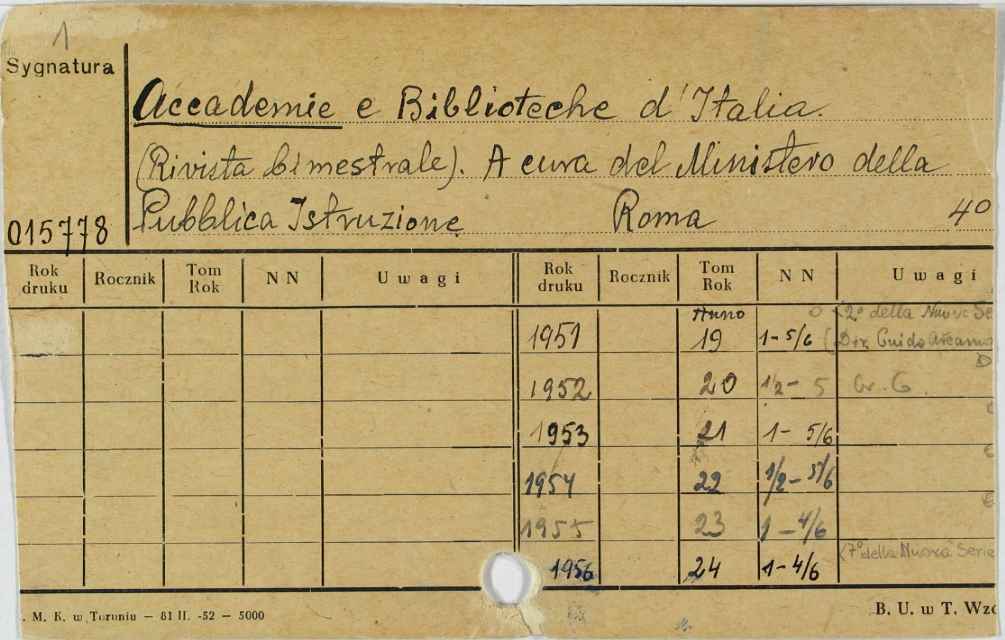 1
Sygnatura
Accademie e Biblioteche d'Italia.
(Rivista bimestrale). A cura del Ministero della
015778 Pubblica Istruzione Roma 40
Rok druku Rocznik Tom Rok N N Uwagi Rok druku Rocznik Tom Rok N N Uwagi
Anno (2° della Nuova Se
1951 19 1-5/6 (Dir. Guido
1952 20 1/2- 5
1953 21 1- 5/6
1954 22 1/2-5/6
1955 23 1-4/6
1956 24 1-4/6 (7° della Nuova Serie
. M. K. w Toruniu — 81 II. -52 — 5000 B. U. w T. Wzó